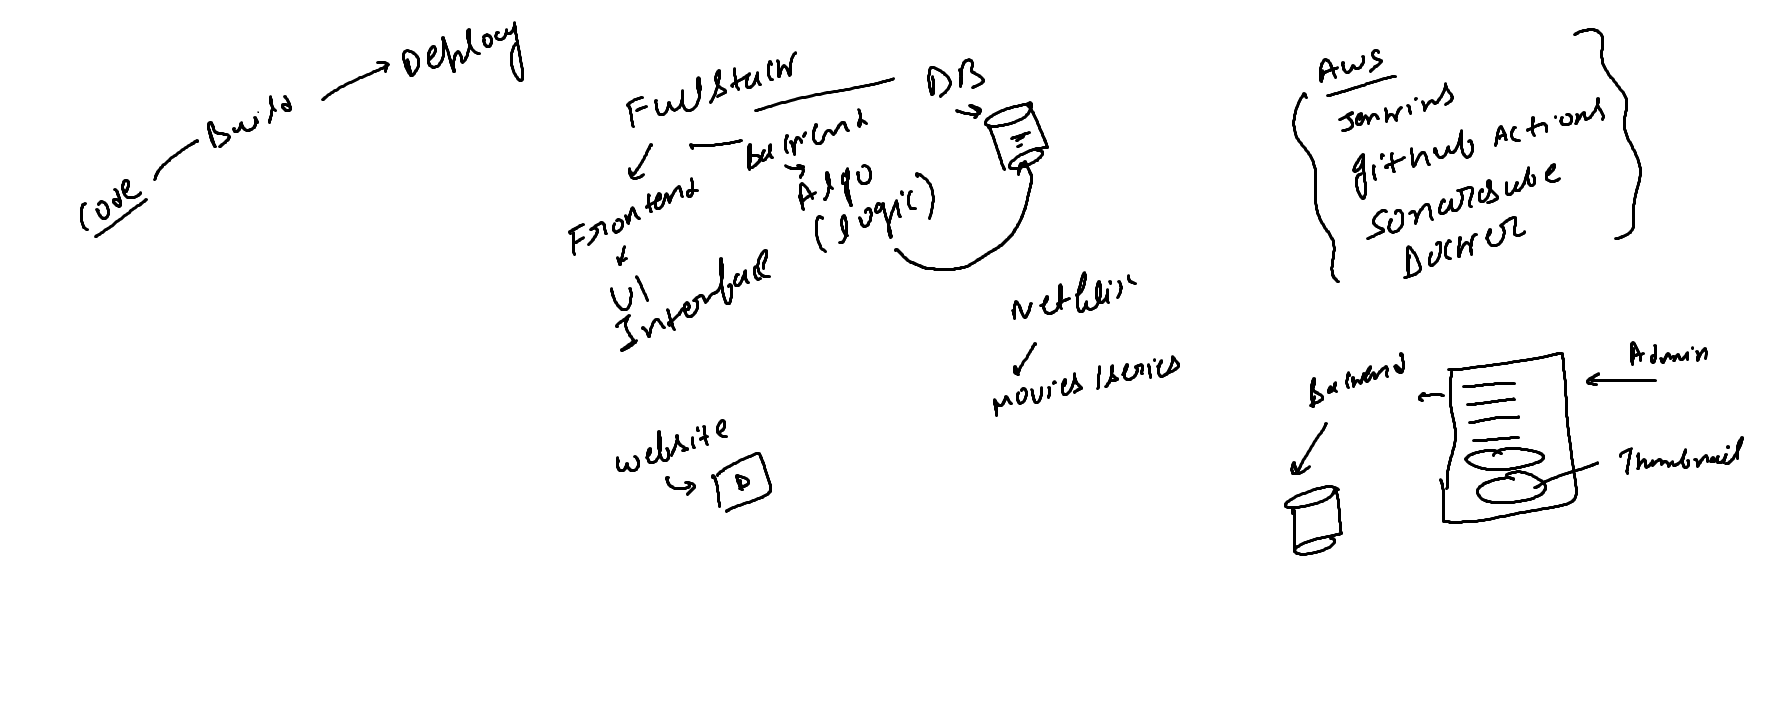 Code
Build
Deploy
Fullstack
Frontend
UI
Interface
Backend
Algo
(logic)
DB
Netflix
Movies/series
website
AWS
Jenkins
github Actions
Sonarcube
Docker
Backend
Admin
Thumbnail